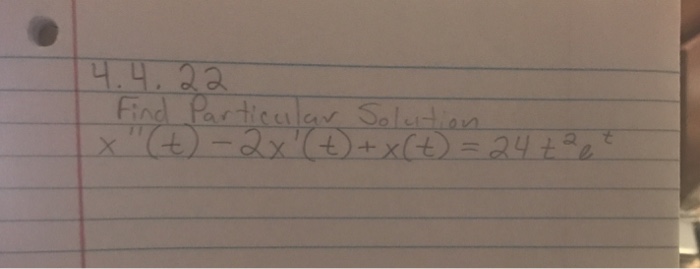 4.4.22
Find Particular Solution
x''(t) - 2x'(t) + x(t) = 24t²e^t